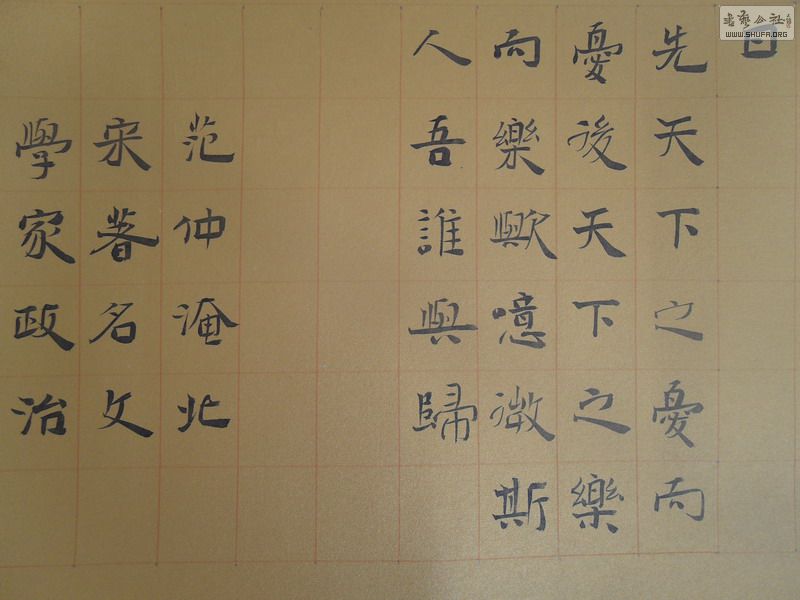 曰
先天下之憂而
憂後天下之樂
而樂歟噫微斯
人吾誰與歸
范仲淹北
宋著名文
學家政治
書藝公社
WWW.SHUFA.ORG